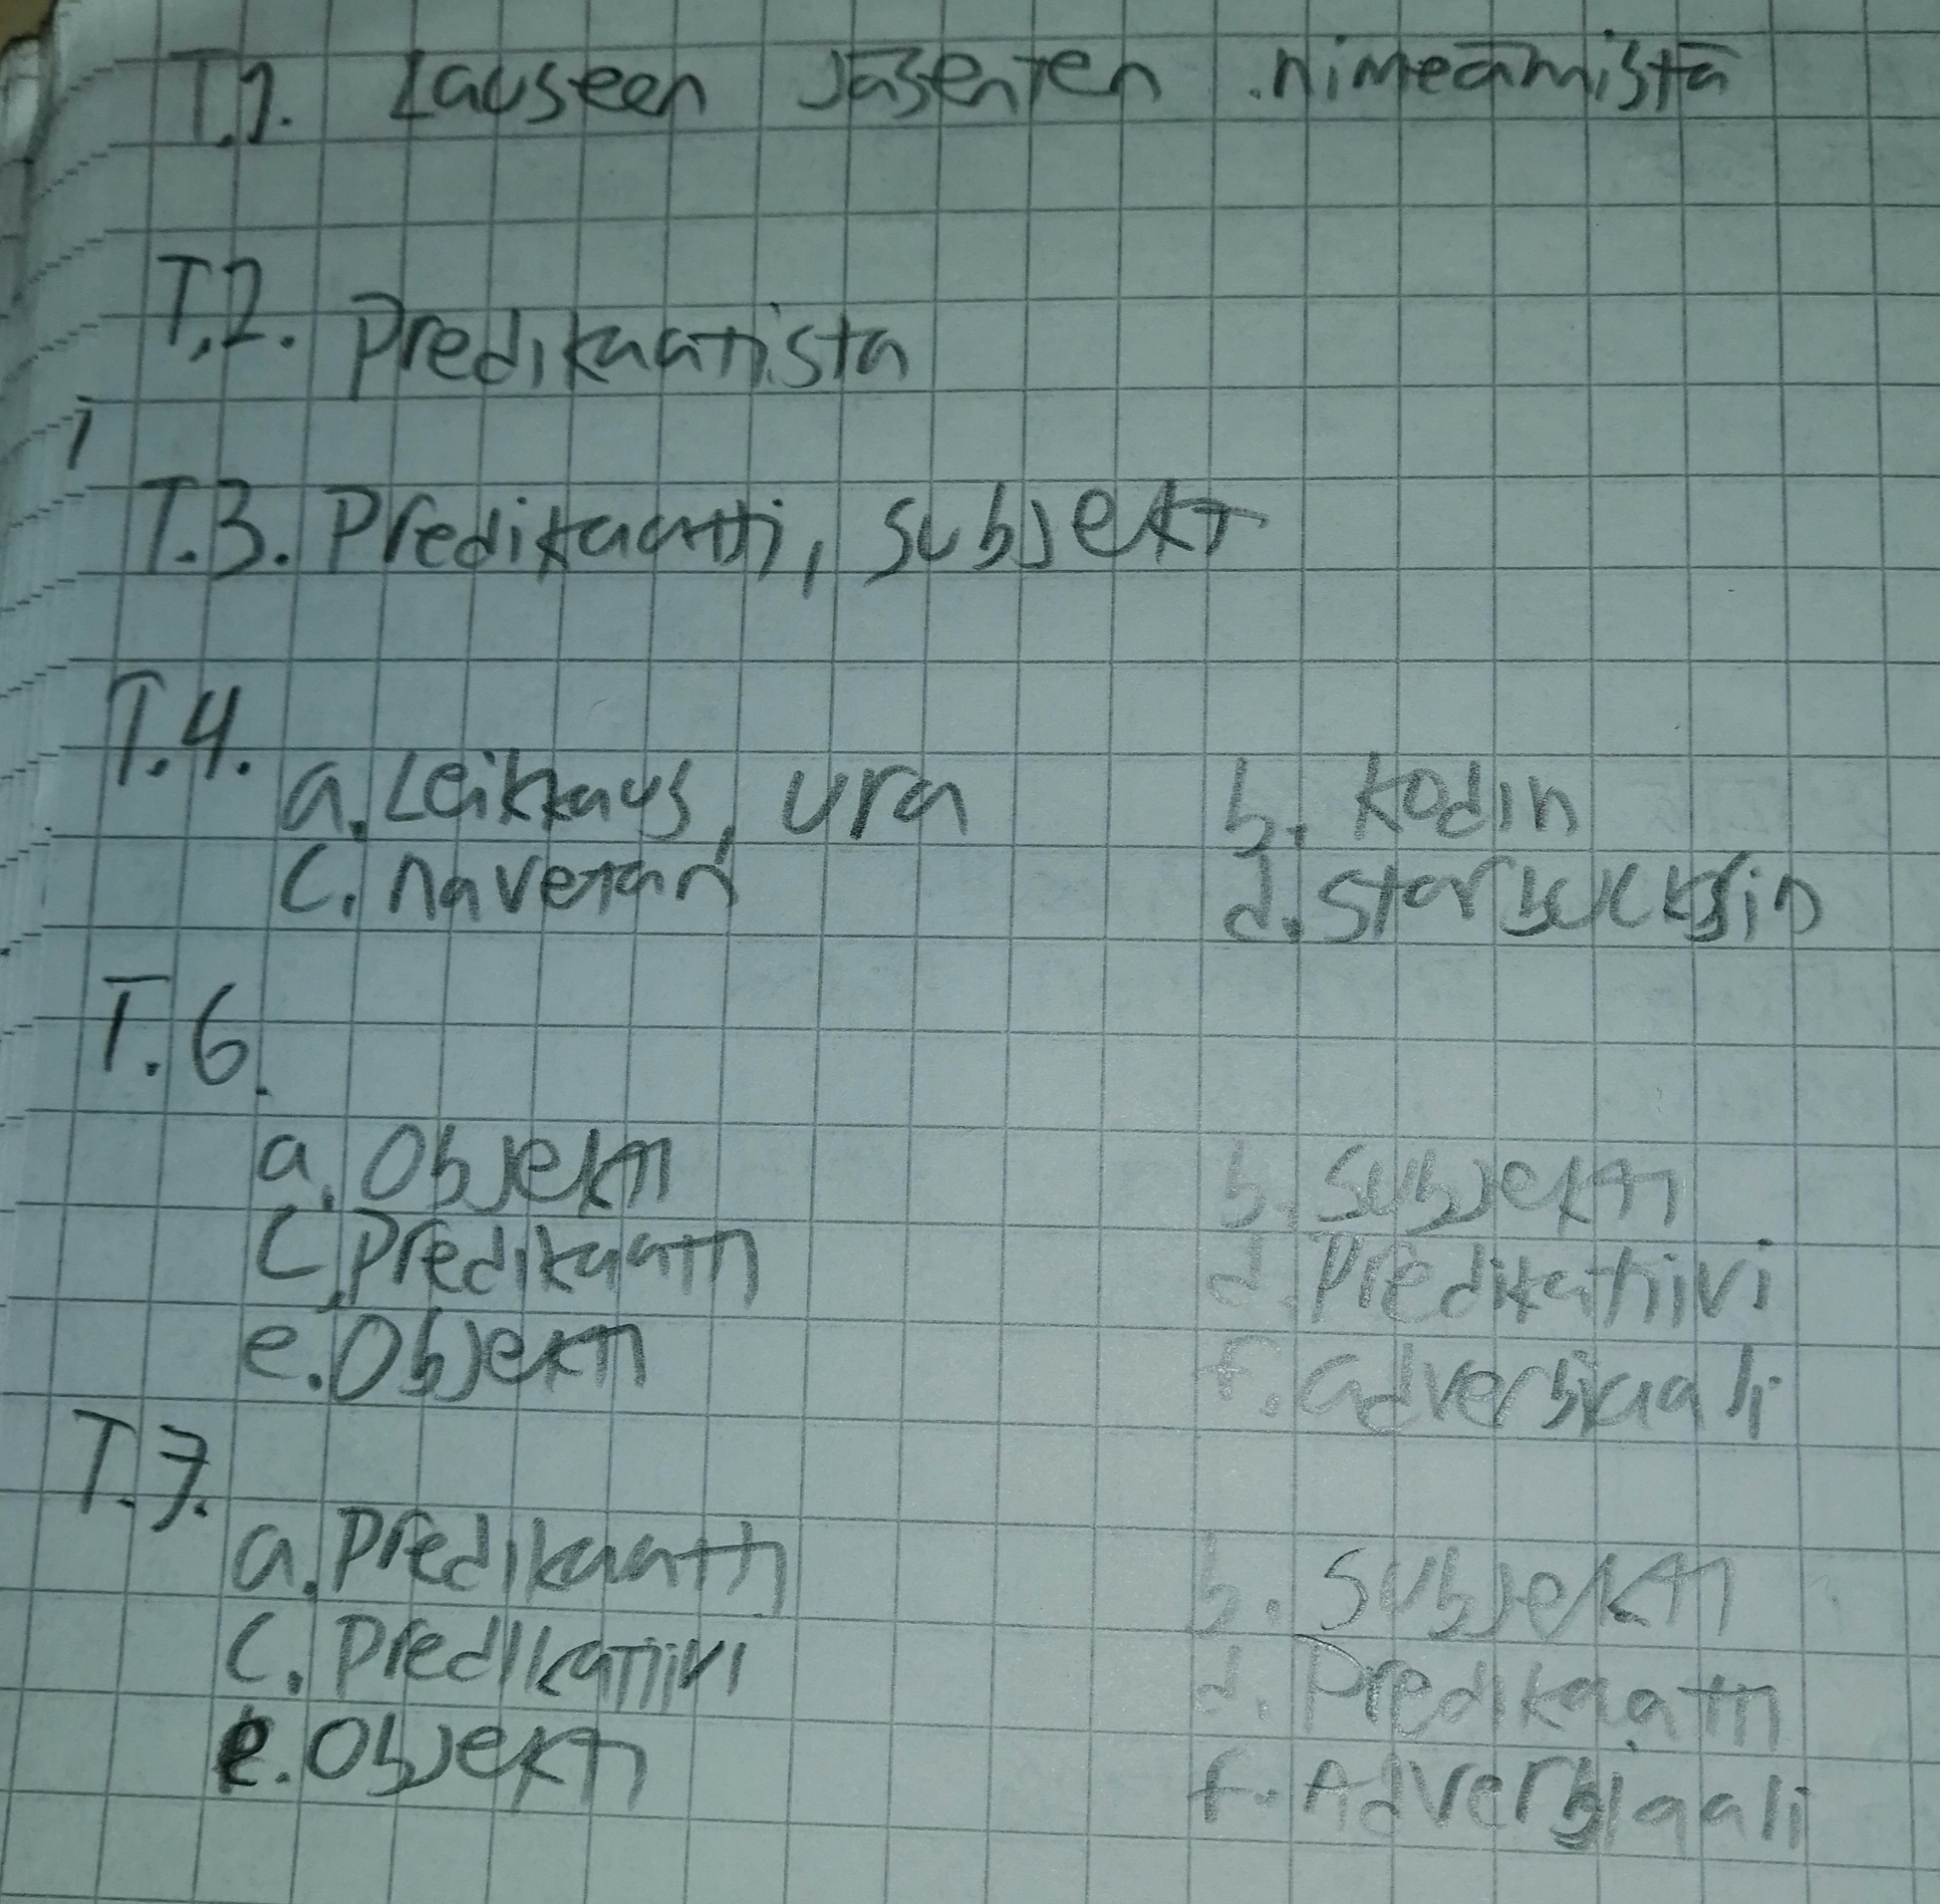 T.1. Lauseen Jäsenten nimeämistä
T.2. Predikaatista
T.3. Predikaatti, subjekt
T.4.
a. Leikkaus, ura b. kodin
c. navetan d. starbucksin
T.6.
a. Objekti b. Subjekti
c. Predikaatti d. Predikatiivi
e. Objekti f. adverbiaali
T.7.
a. Predikaatti b. Subjekti
c. Predikatiivi d. Predikaatti
e. Objekti f. Adverbiaali